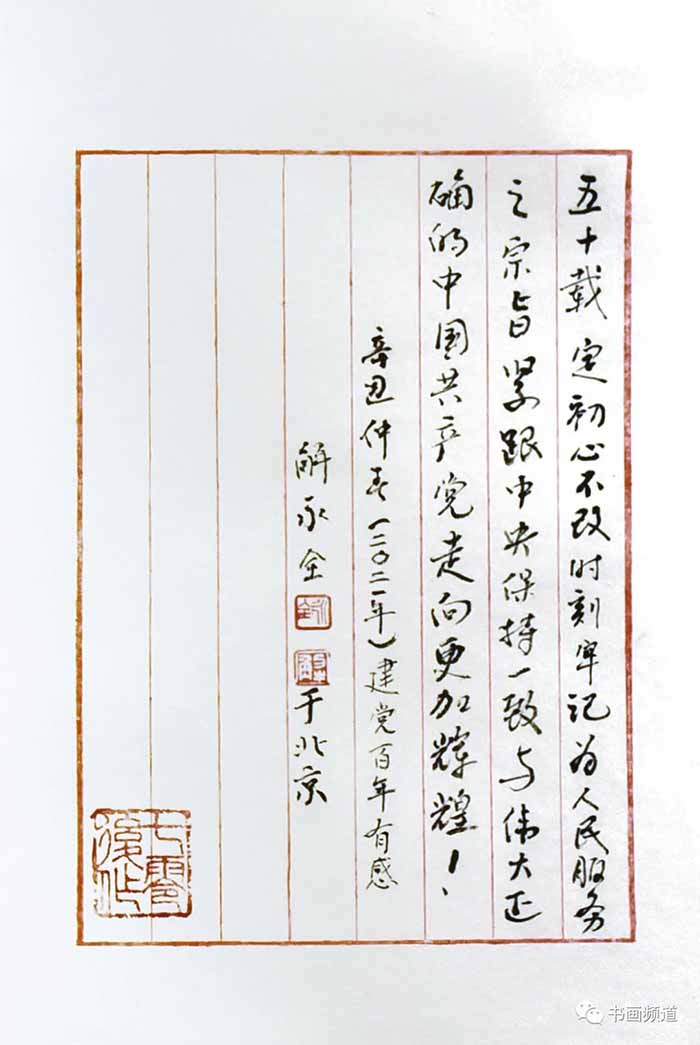 五十载定初心不改时刻牢记为人民服务
之宗旨紧跟中央保持一致与伟大正
确的中国共产党走向更加辉煌！
辛丑仲春（二〇二一年）建党百年有感
解永全
于北京
七零後作
书画频道